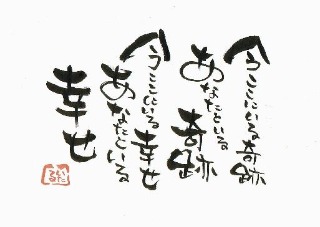 今ここにいる奇跡
あなたといる
奇跡
今ここにいる幸せ
あなたといる
幸せ